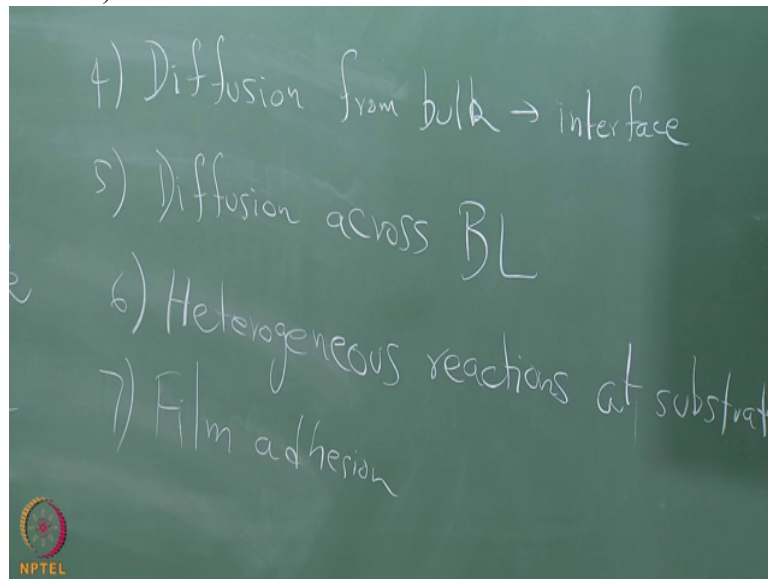 4) Diffusion from bulk → interface
5) Diffusion across BL
6) Heterogeneous reactions at substrat
7) Film adhesion
NPTEL